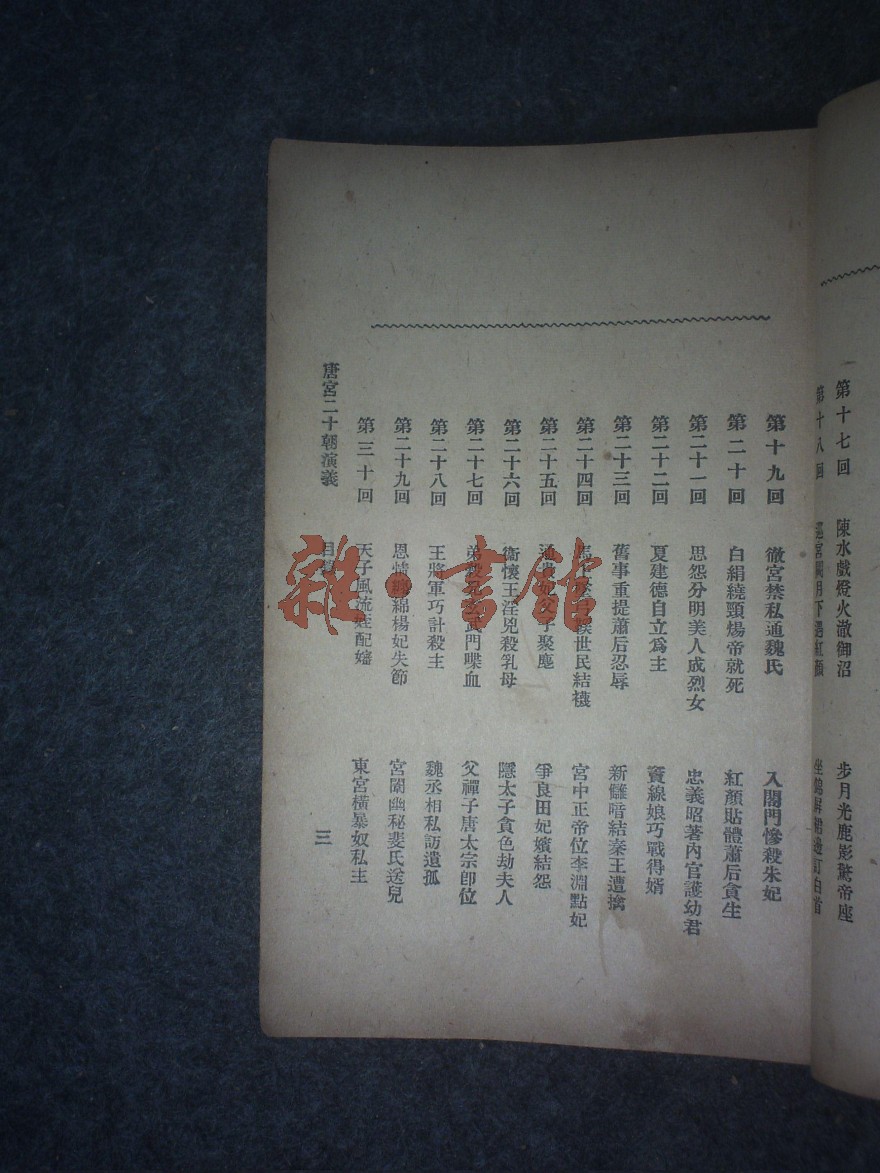 第十七回 陳水戲燈火澈御沼 步月光鹿影驚帝座
第十八回 宮闕月下遇紅顏 坐錦屏裙邊訂白首
第十九回 徹宮禁私通魏氏 入閣門慘殺朱妃
第二十回 白絹繞頸煬帝就死 紅顏貼體蕭后貪生
第二十一回 思怨分明美人成烈女 忠義昭著內官護幼君
第二十二回 夏建德自立爲主 竇線娘巧戰得婿
第二十三回 舊事重提蕭后忍辱 新讎暗結秦王遭擒
第二十四回 世民結襪 宮中正帝位李淵點妃
第二十五回 子聚麀 爭良田妃嬪結怨
第二十六回 衞懷王淫兇殺乳母 隱太子貪色劫夫人
第二十七回 弟殺兄玄武門喋血 父禪子唐太宗卽位
第二十八回 王將軍巧計殺主 魏丞相私訪遺孤
第二十九回 恩情綿綿楊妃失節 宮闈幽秘斐氏送兒
第三十回 天子風流姪配嬸 東宮橫暴奴私主
唐宮二十朝演義 目 三
雜·書館